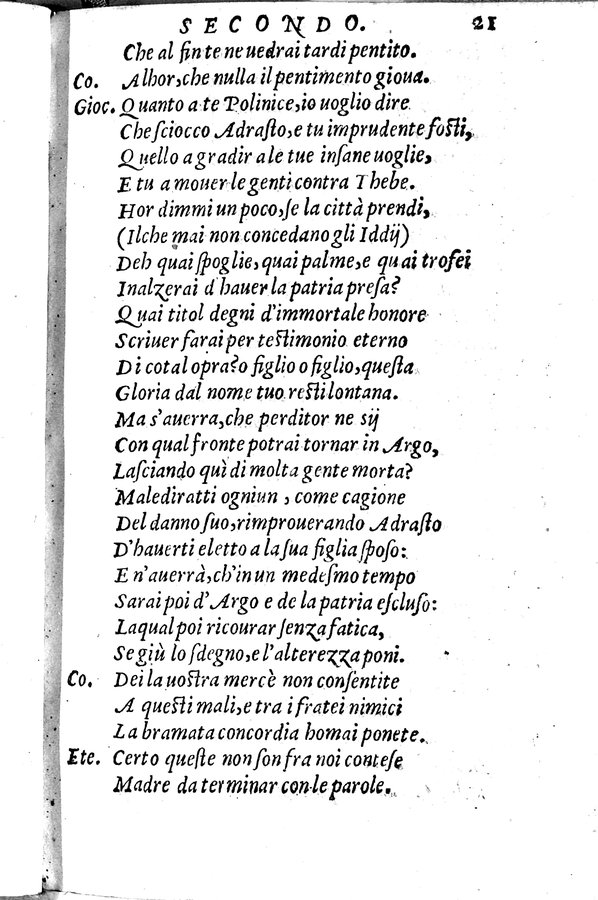 SECONDO. 21
Che al fin te ne uedrai tardi pentito.
Co. Alhor, che nulla il pentimento gioua.
Gioc. Quanto a te Polinice, io uoglio dire
Che ſciocco Adraſto, e tu imprudente foſti,
Quello a gradir a le tue inſane uoglie,
E tu a mouer le genti contra Thebe.
Hor dimmi un poco, ſe la città prendi,
(Ilche mai non concedano gli Iddij)
Deh quai ſpoglie, quai palme, e quai trofei
Inalzerai d'hauer la patria preſa?
Quai titol degni d'immortale honore
Scriuer farai per teſtimonio eterno
Di cotal opra? o figlio o figlio, queſta
Gloria dal nome tuo reſti lontana.
Ma s'auerra, che perditor ne sij
Con qual fronte potrai tornar in Argo,
Laſciando quì di molta gente morta?
Malediratti ogniun, come cagione
Del danno ſuo, rimprouerando Adraſto
D'hauerti eletto a la ſua figlia ſpoſo:
E n'auerrà, ch'in un medeſmo tempo
Sarai poi d'Argo e de la patria eſcluſo:
Laqual poi ricourar ſenza fatica,
Se giù lo ſdegno, e l'alterezza poni.
Co. Dei la uoſtra mercè non conſentite
A queſti mali, e tra i fratei nimici
La bramata concordia homai ponete.
Ete. Certo queſte non ſon fra noi conteſe
Madre da terminar con le parole.